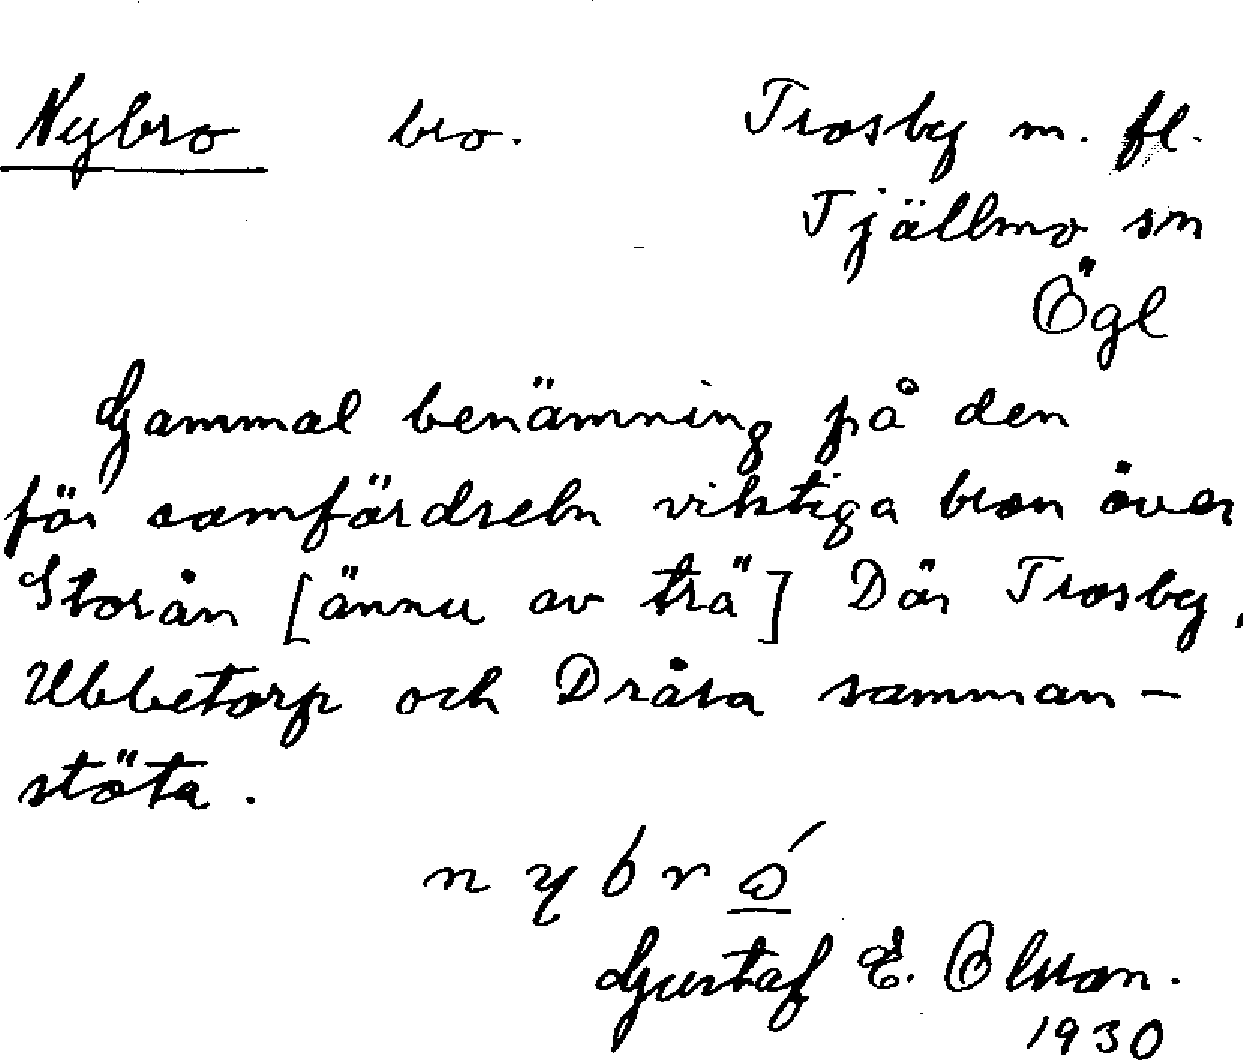 Nybro bro. Trosby m. fl.
Tjällmo sn
Ögl
Gammal benämning på den
för samfärdseln viktiga bron över
Storån [ännu av trä] Där Trosby,
Ubbetorp och Dråsa samman-
stöta.
nybró
Gustaf E. Olsson.
1930